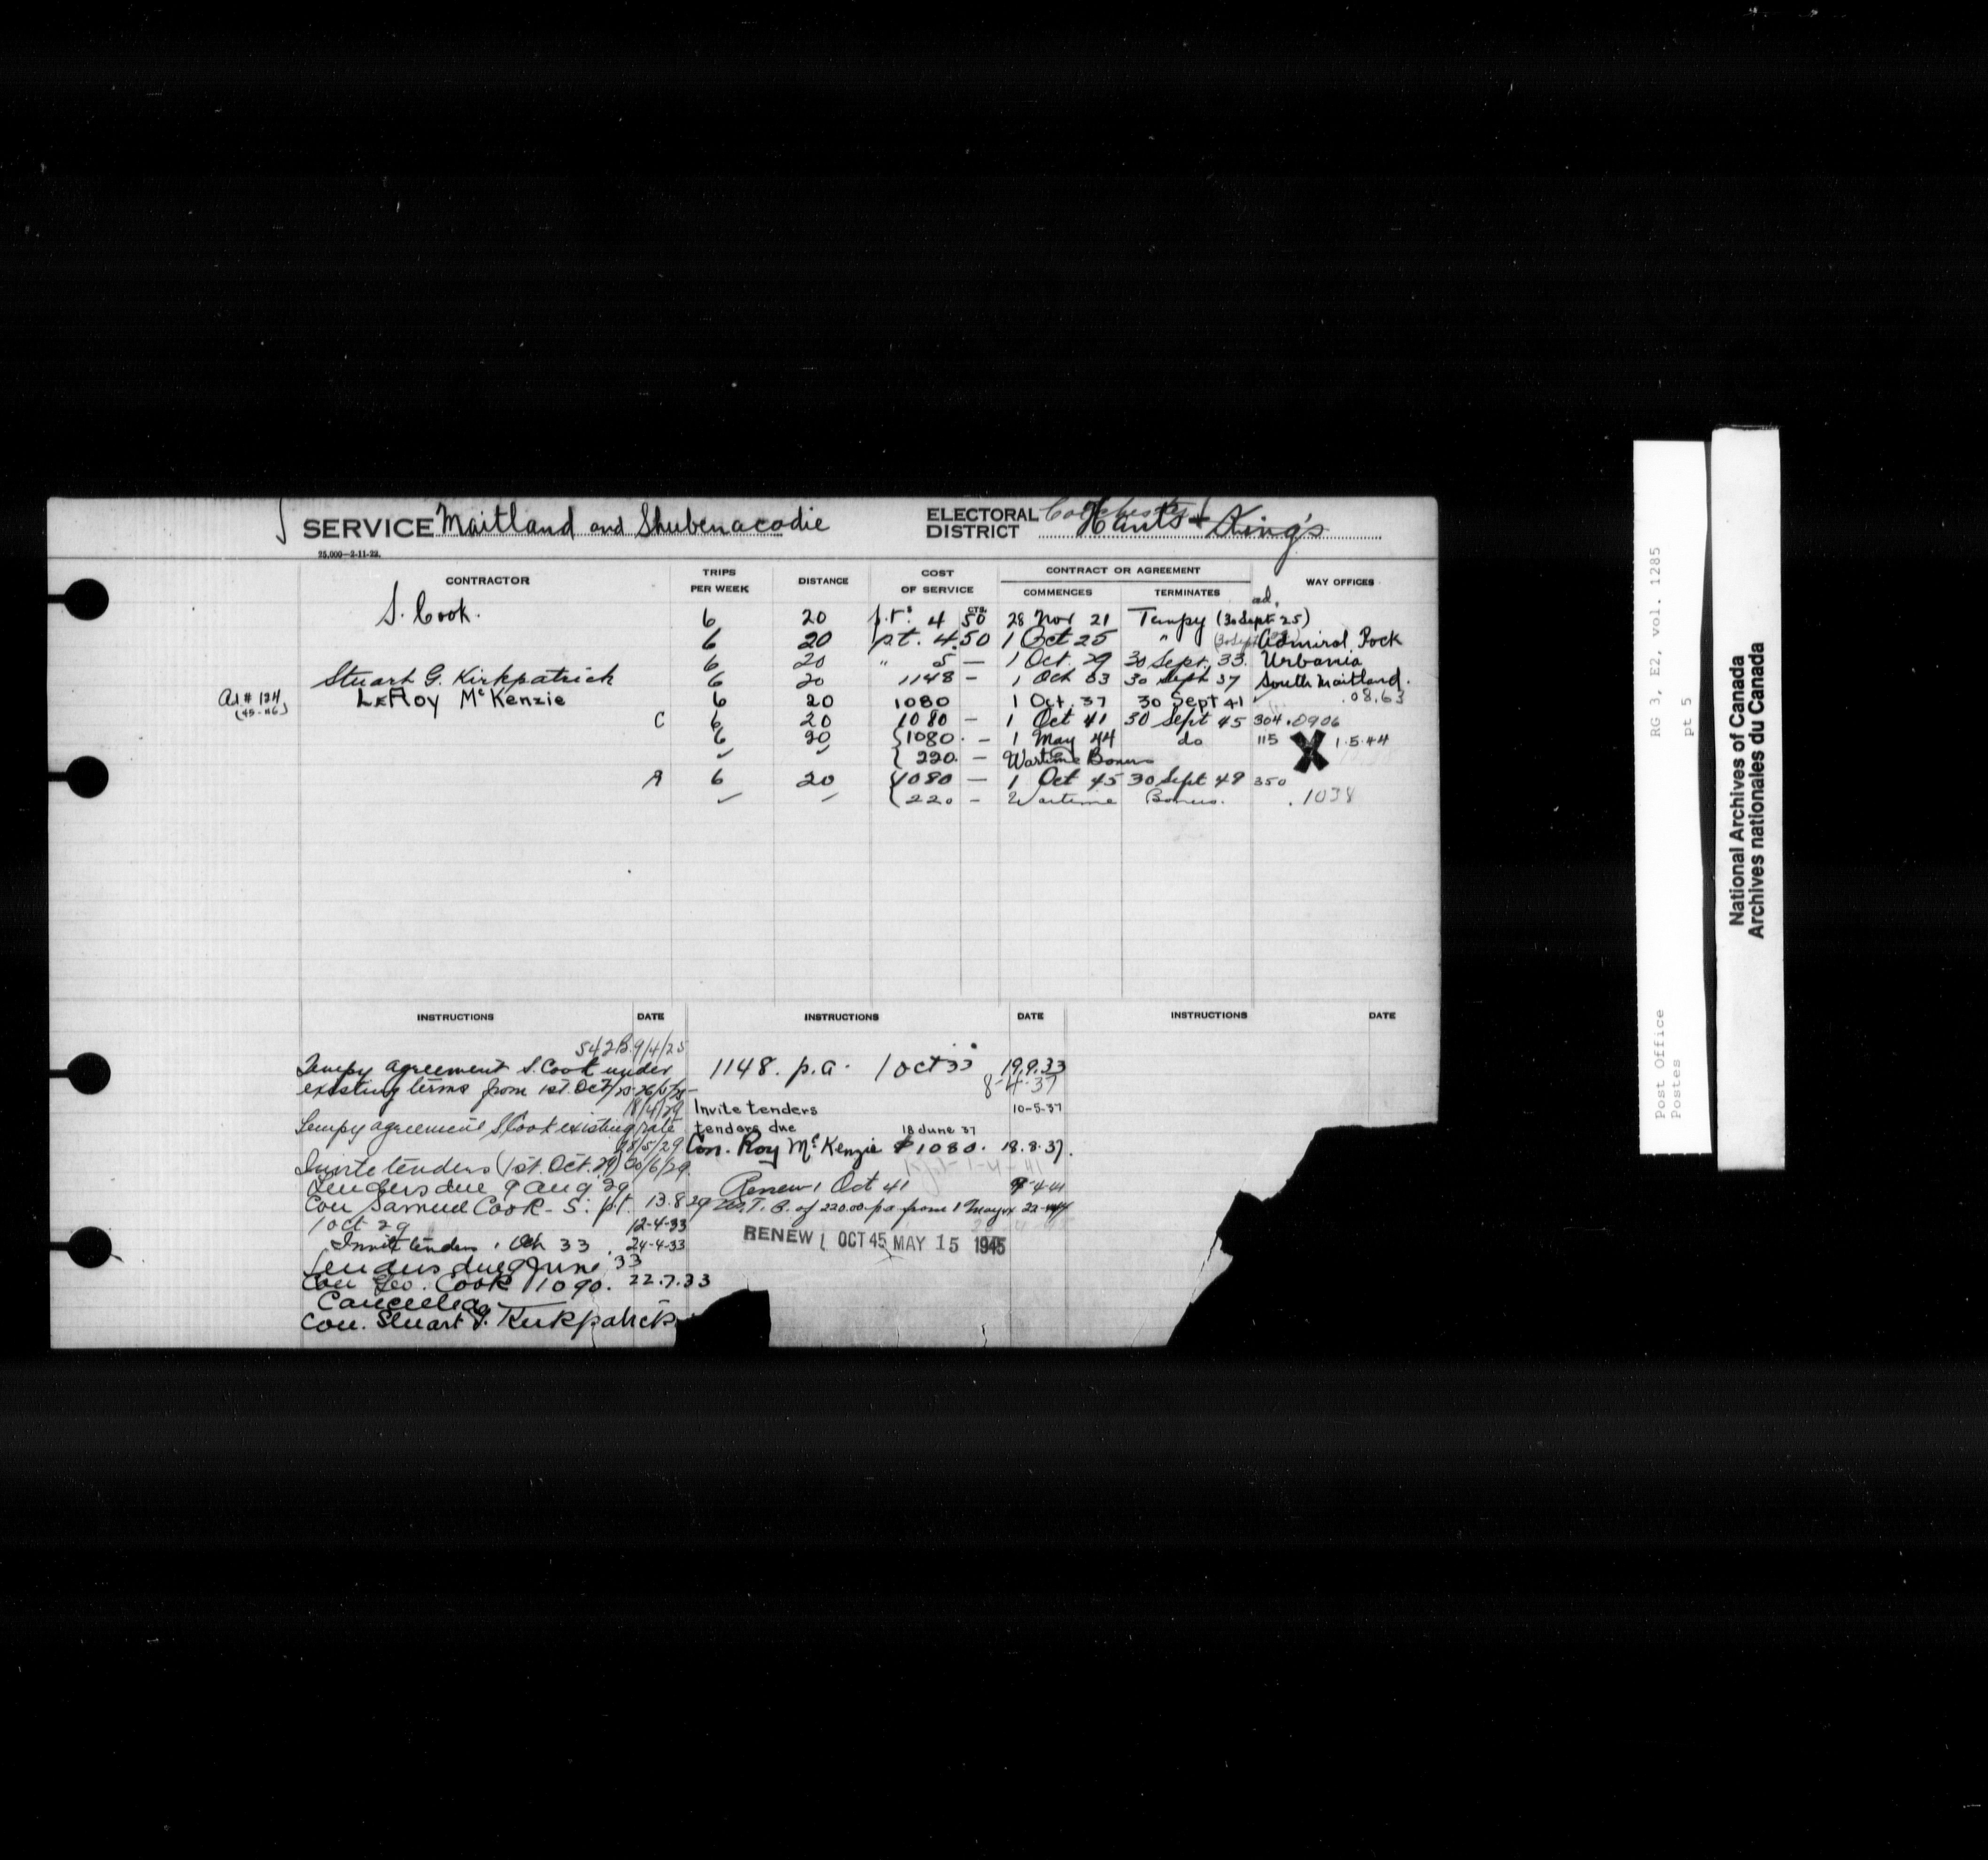 SERVICE Maitland and Shubenacadie
ELECTORAL DISTRICT Colchester Hants + King's
25,000—2-11-22.
CONTRACTOR TRIPS PER WEEK DISTANCE COST OF SERVICE CONTRACT OR AGREEMENT COMMENCES TERMINATES WAY OFFICES
CTS. ad,
S. Cook. 6 20 p.t. 4 50 28 Nov 21 Tempy (30 Sept 25)
6 20 p.t. 4.50 1 Oct 25 " Admiral Rock
6 20 " 5 — 1 Oct. 29 30 Sept. 33. Urbania
Stuart G. Kirkpatrick 6 20 1148 — 1 Oct 33 30 Sept 37 South Maitland.
Ad # 124 LeRoy McKenzie 6 20 1080 1 Oct. 37 30 Sept 41 .08,63
(45-46)
C 6 20 1080 — 1 Oct 41 30 Sept 45 304 .0906
6 20 {1080. — 1 May 44 do 115 X 1.5.44
{220. — Wartime Bonus
A 6 20 {1080 — 1 Oct 45 30 Sept 49 350
{220 — Wartime Bonus. .1038
INSTRUCTIONS DATE INSTRUCTIONS DATE INSTRUCTIONS DATE
542B. 9/4/25
Tempy agreement S. Cook under
existing terms from 1st. Oct/25 26/5/25
18/4/29
Tempy agreement S Cook existing rate
28/5/29
Invite tenders (1st. Oct. 29) 20/6/29
Tenders due 9 Aug. 29
Con Samuel Cook - 5. p.t. 13.8.29
1 Oct 29 12-4-33
Invite tenders 1 Oct 33. 24-4-33
Tenders due 9 June 33
Con Geo. Cook 1090. 22.7.33
Cancelled
Con. Stuart G. Kirkpatrick
1148. p.a. 1 Oct 33 19.9.33
8-4-37
Invite tenders 10-5-37
tenders due 18 June 37
Con. Roy McKenzie $1080. 18.8.37.
Renew 1 Oct 41 9-4-41
W.T.B. of 220.00 pa from 1 May 22-4-44
RENEW 1 OCT 45 MAY 15 1945
RG 3, E2, vol. 1285
pt 5
Post Office
Postes
National Archives of Canada
Archives nationales du Canada